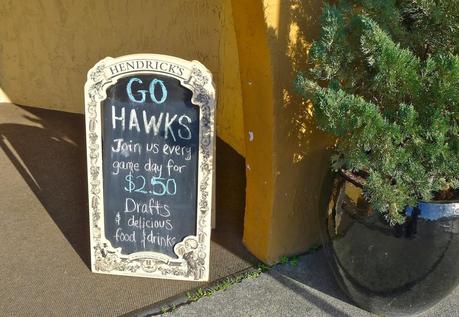 HENDRICK'S
GO
HAWKS
Join us every
game day for
$2.50
Drafts
& delicious
food & drinks